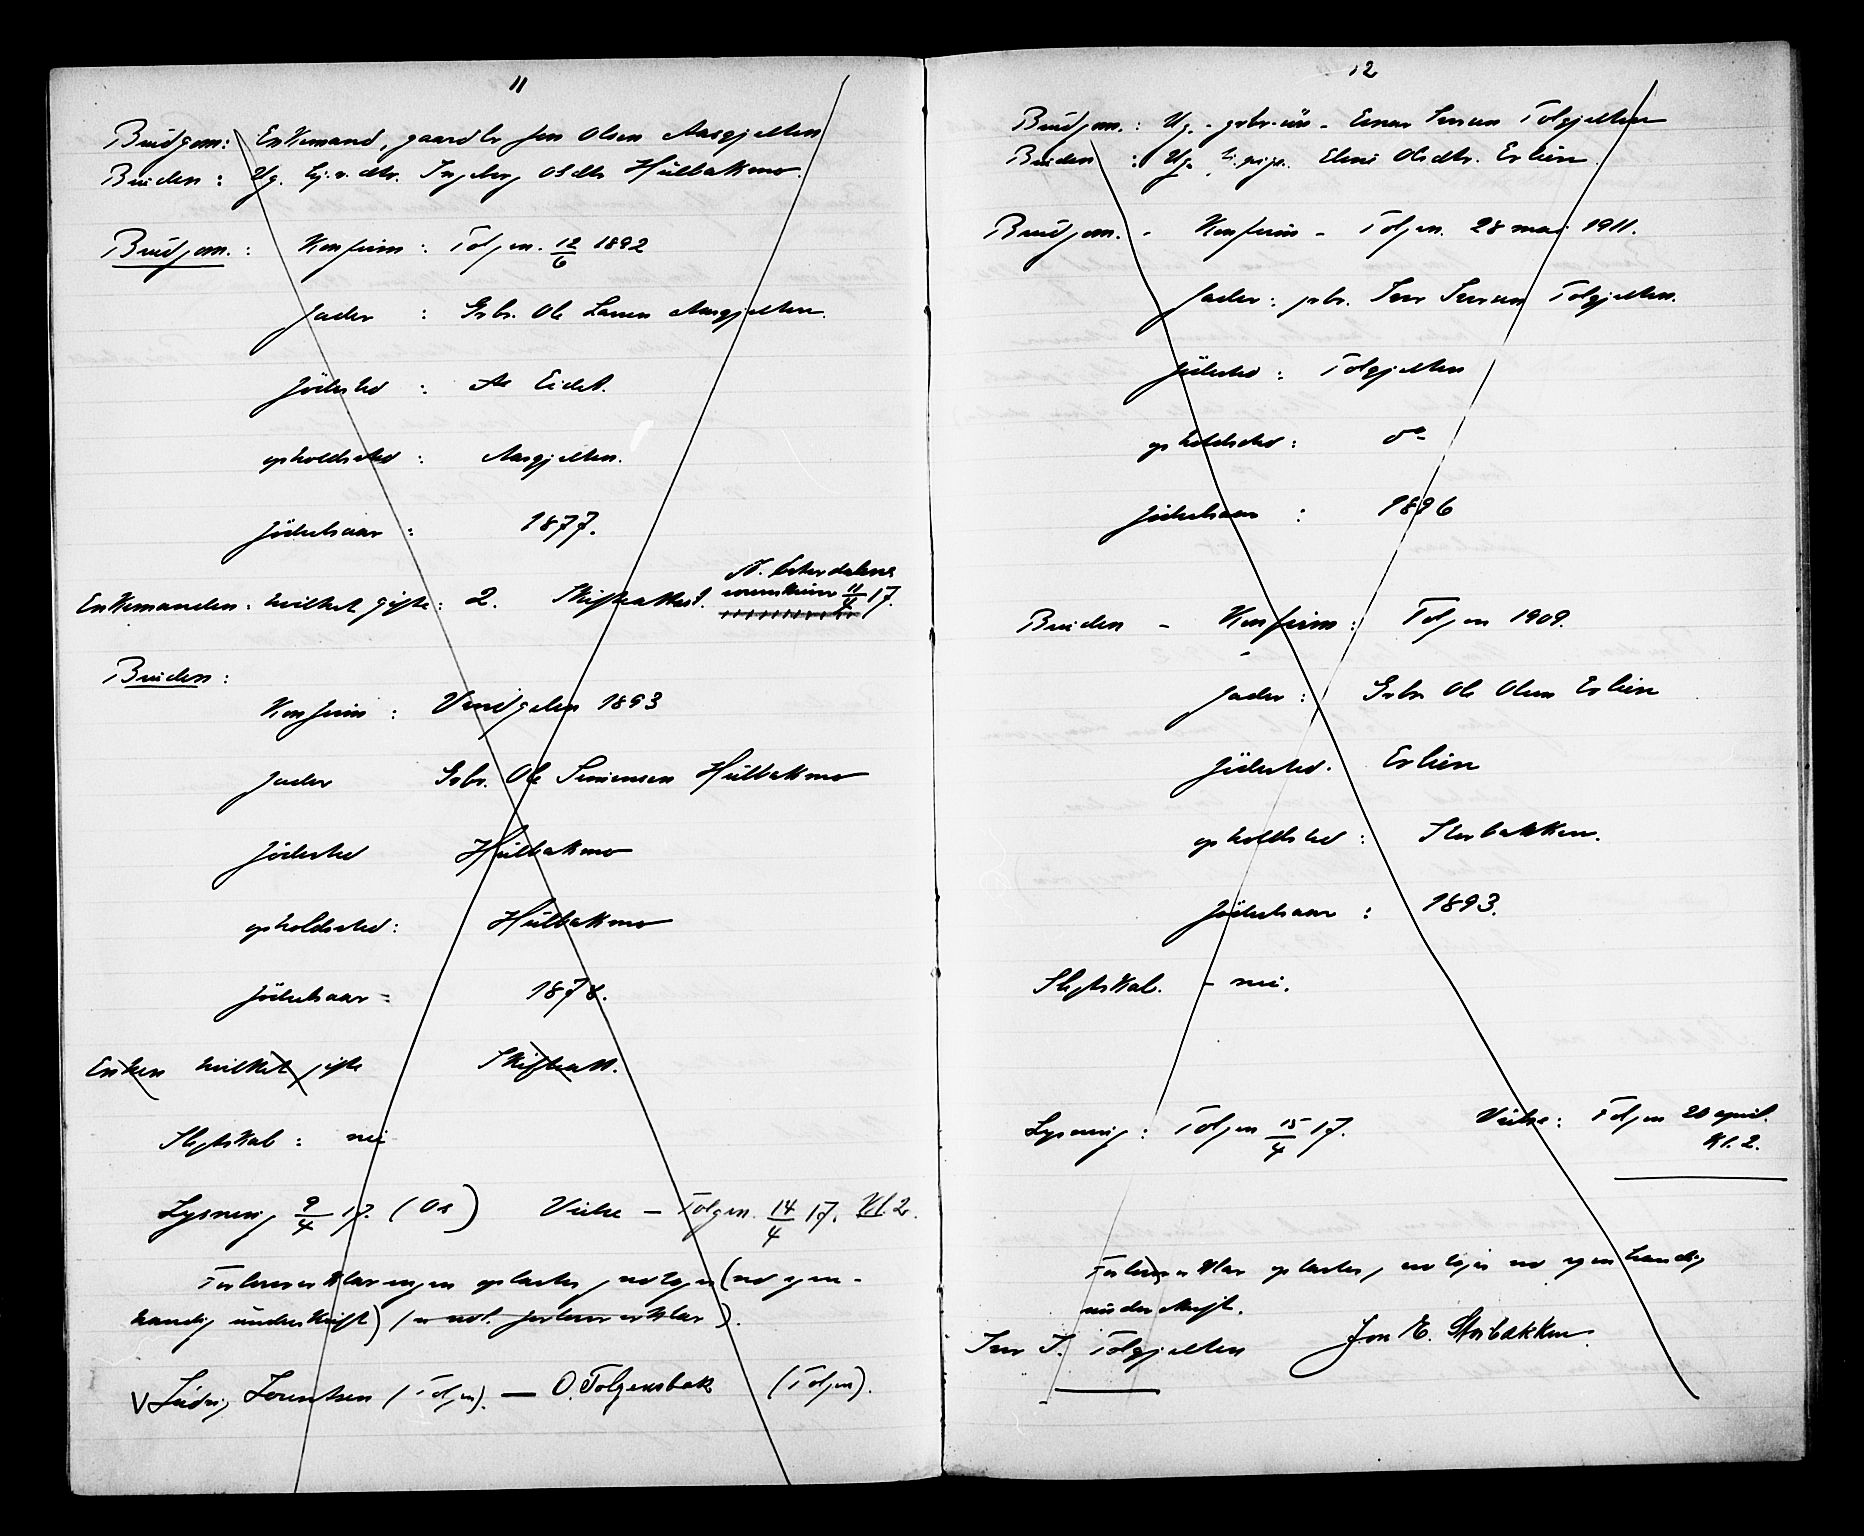 11
Brudgom: Enkemand, gaardbr Jon Olsen Aasgjelten
Bruden: Ug. hj.v. dtr. Ingeborg Olsdtr Hulbakmo.
Brudgom.: Konfirm: Tolgen. 12/6 1892
Fader: Grbr. Ole Larsen Aasgjelten.
Födested: Aa Eidet.
opholdssted: Aasgjelten.
Födselsaar: 1877.
N. Österdalens
Enkemanden: hvilket gifte: 2. Skifteattest. sorenskriver 11/4 17.
Bruden:
Konfirm: Vingelen 1893
Fader Grbr. Ole Simensen Hulbakmo
Födested Hulbakmo
opholdssted: Hulbakmo
Födselsaar 1878.
Enken hvilket gifte Skifteatt.
Slegtskab: nei
Lysning 9/4 17. (Os) Vielse - Tolgen. 14/4 17. Kl 2.
Forlovererklæringen oplæstes, vedtges (ved egen-
hændig underskrift) ( forlovererklær).
V Ludvig Lorentsen (Tolgen). - O. Tolgensbak (Tolgen).
12
Brudgom.: Ug. - grbr. sön - Einar Iversen Tolgjelten
Bruden: Ug. pige. Eline Olsdtr. Erlien.
Brudgom. - Konfirm - Tolgen. 28 mai 1911.
Fader: grbr. Iver Iversen Tolgjelten.
Födested: Tolgjelten
opholdssted: do
Födselsaar: 1896
Bruden - Konfirm: Tolgen 1909.
Fader: Grbr Ole Olsen Erlien
Födested. Erlien
opholdssted: Storbakken.
Födselsaar: 1893.
Slegtskab. - nei.
Lysning: Tolgen 15/4 17. Vielse: Tolgen 20 april.
Kl. 2.
Forlovererklær oplæstes, vedtges ved egenhændig
underskrift.
Iver I. Tolgjelten Jon E. Storbakken